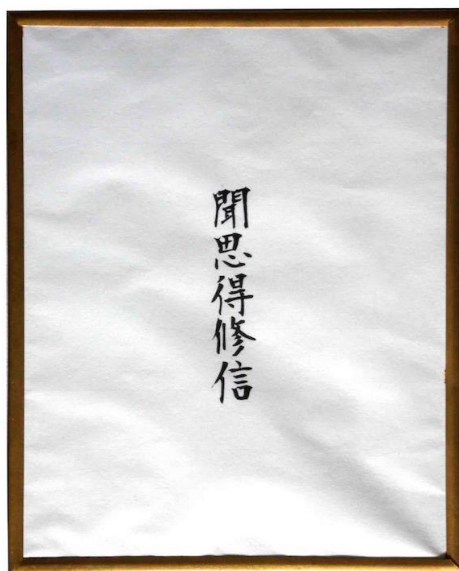 聞思得修信